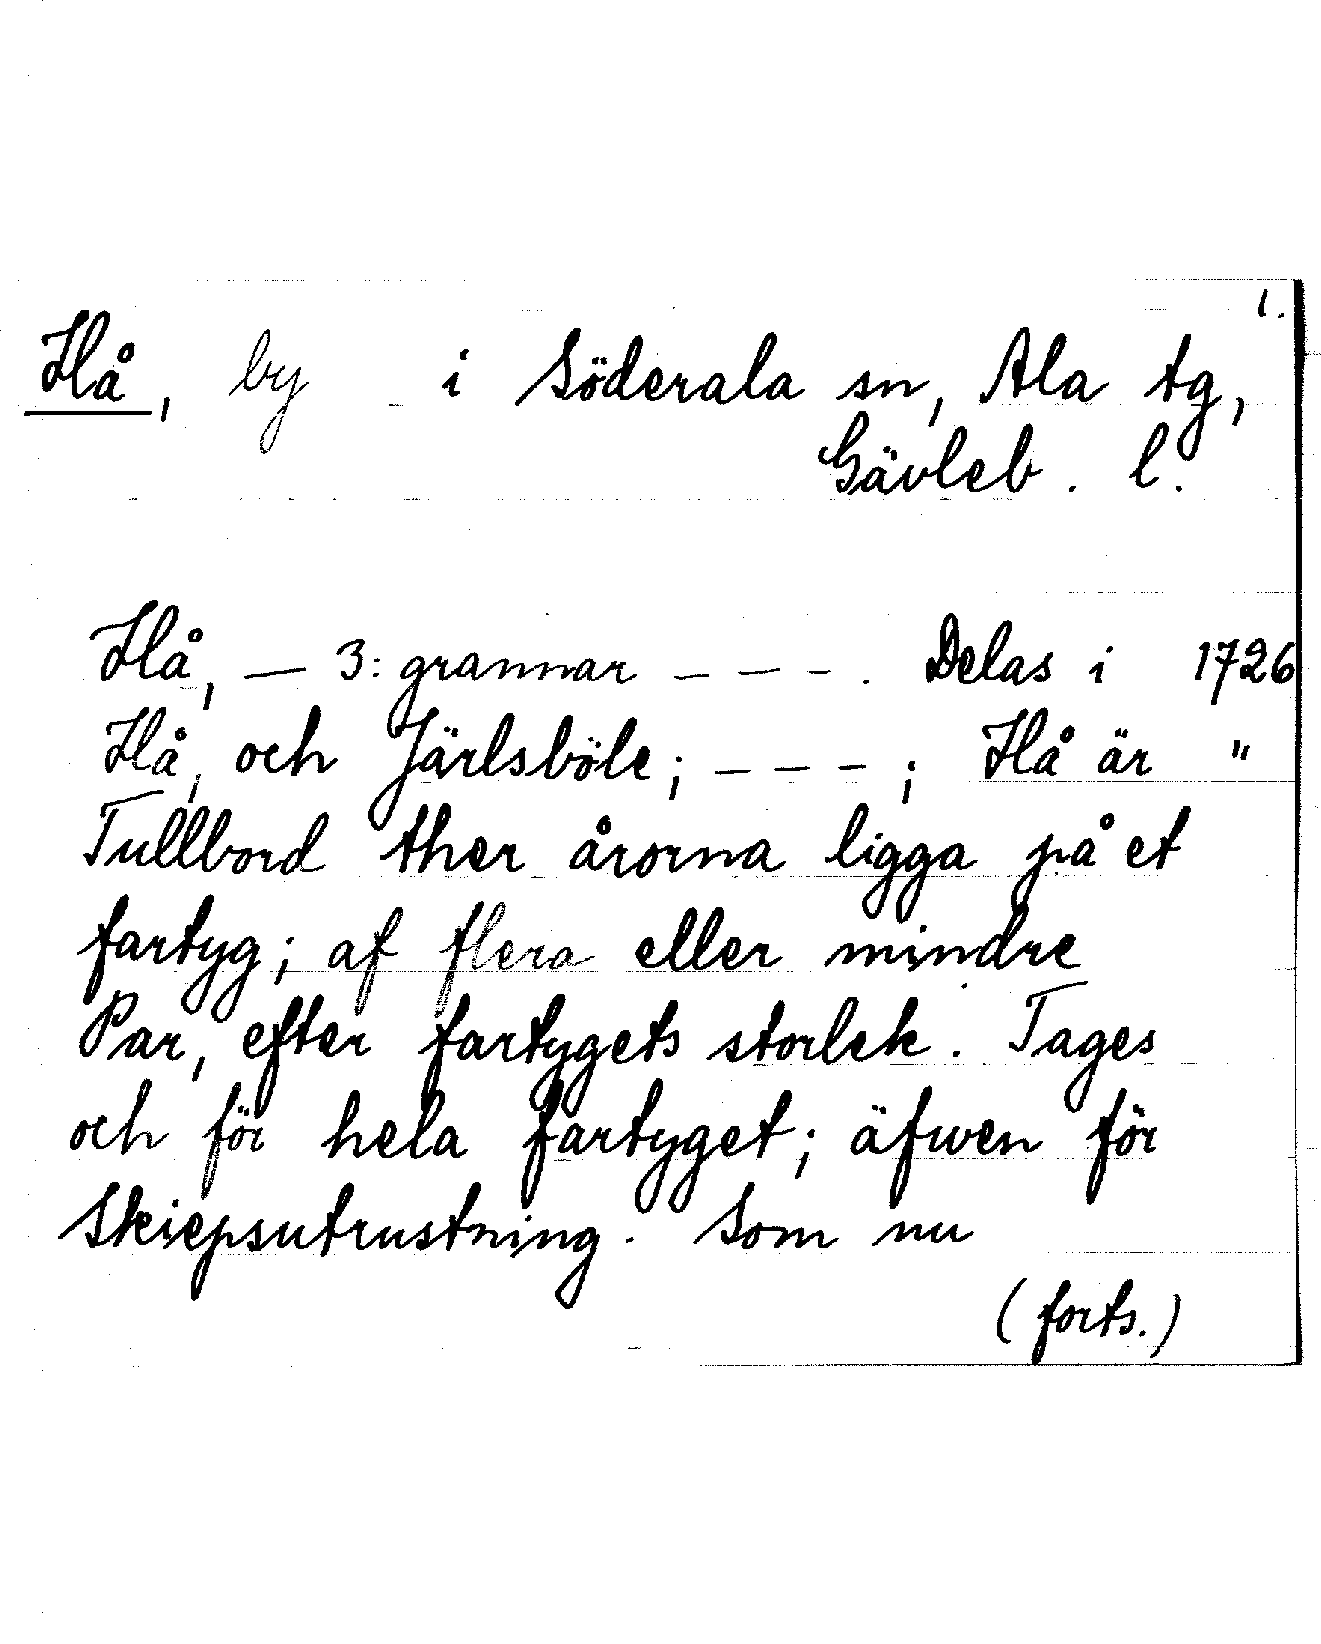 1.
Hå, by i Söderala sn, Ala tg,
Gävleb. l.
Hå, — 3: grannar – – – . Delas i 1726
Hå, och Järlsböle; – – – ; Hå är "
Tullbord ther årorna ligga på et
fartyg; af flera eller mindre
Par, efter fartygets storlek. Tages
och för hela fartyget; äfwen för
Skiepsutrustning. Som nu
(forts.)